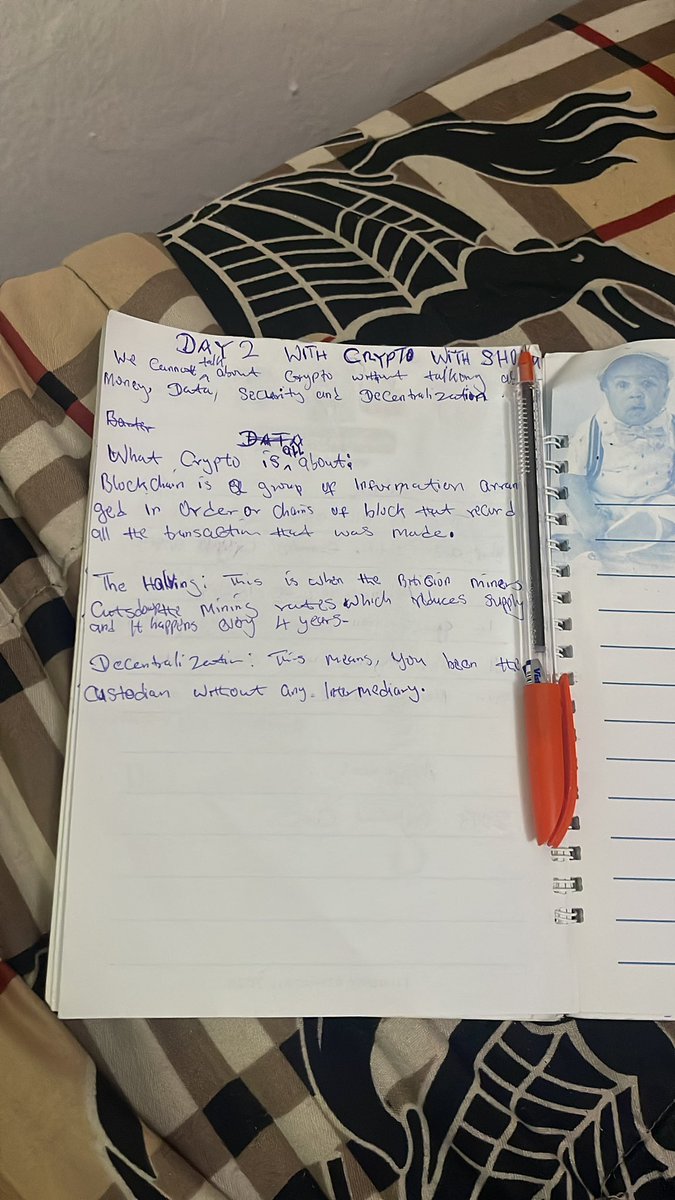 DAY 2 WITH CRYPTO WITH
We Cannot talk about Crypto without talking
Money, Data, Security and Decentralization.
DATA
What Crypto is all about:
Blockchain is a group of Information arran
ged in Order or chains of block that record
all the transaction that was made.
The Halving: This is when the miners
Cutsdown the mining rates which reduces supply
and It happens every 4 years-
Decentralization: This means, You been the
Custodian without any. Intermediary.